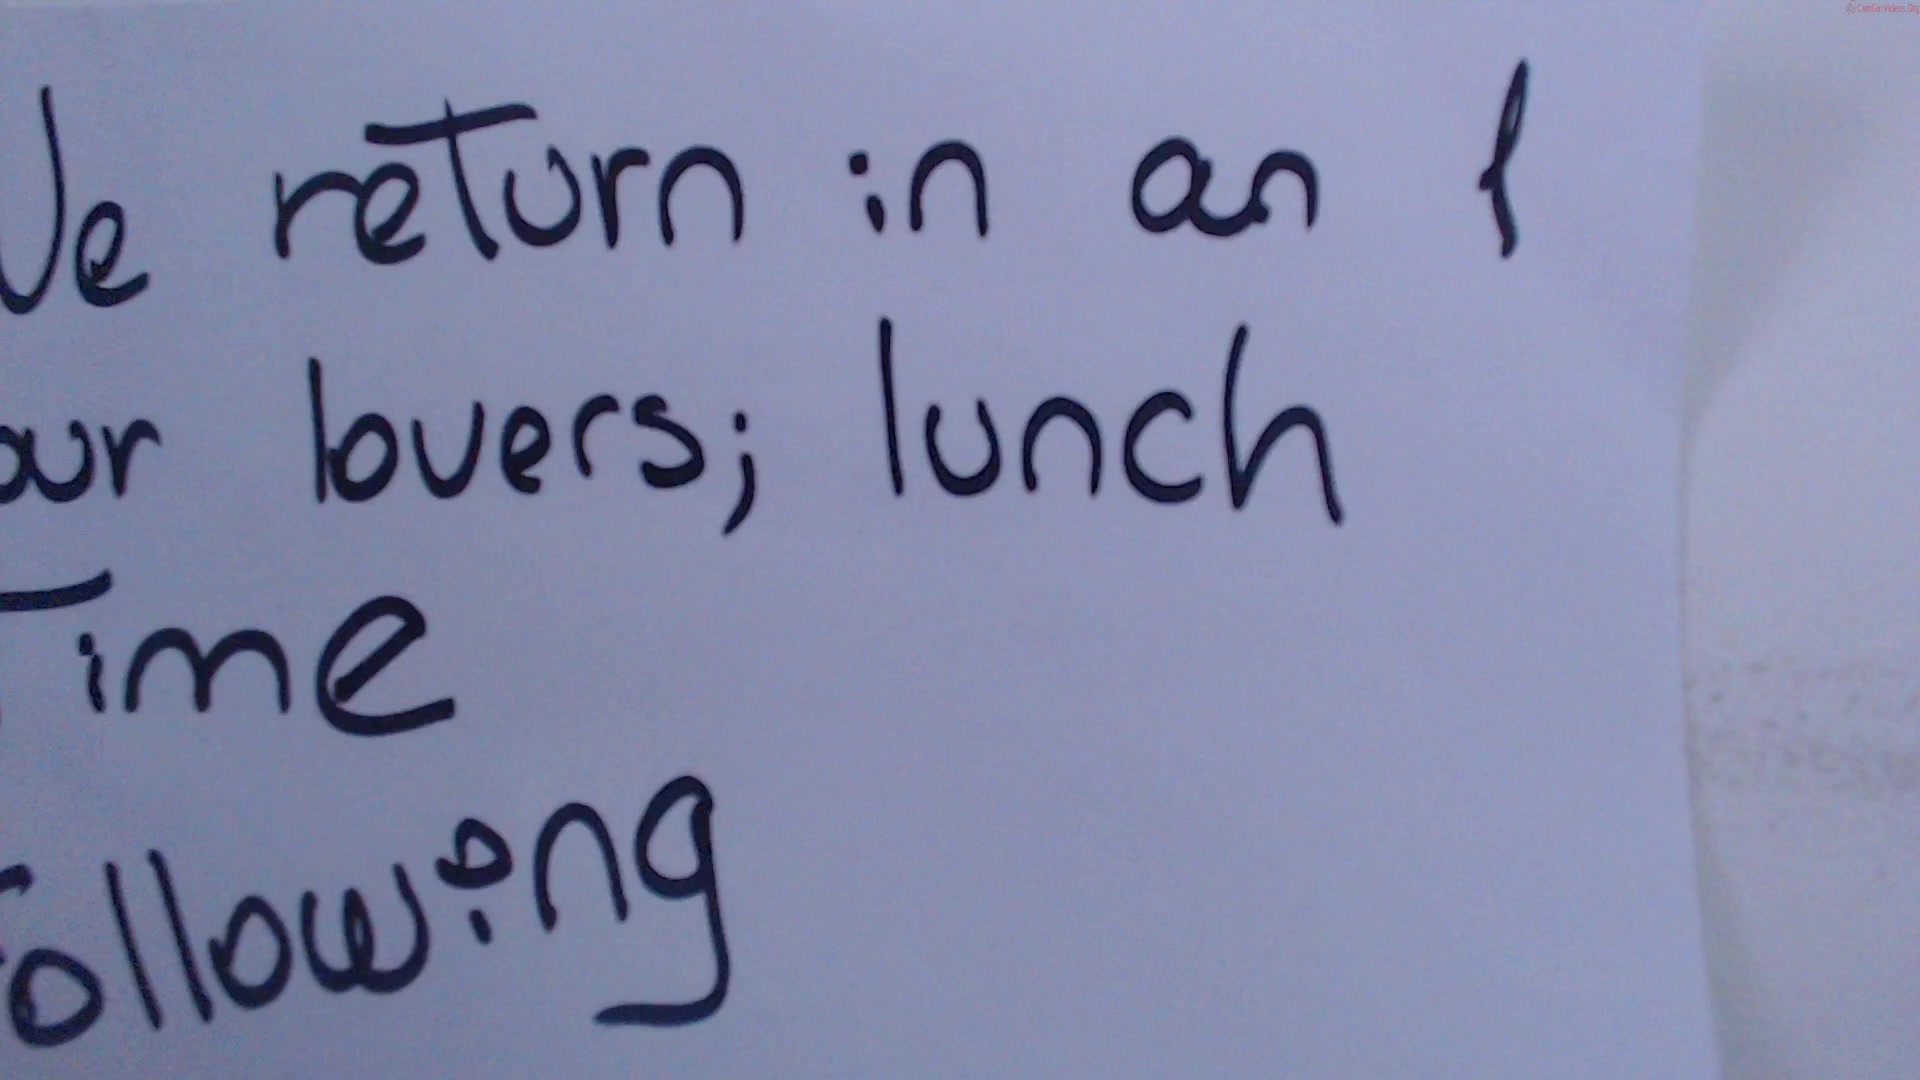 We return in an
our lovers; lunch
Time
following
CamGirlVideos.Org